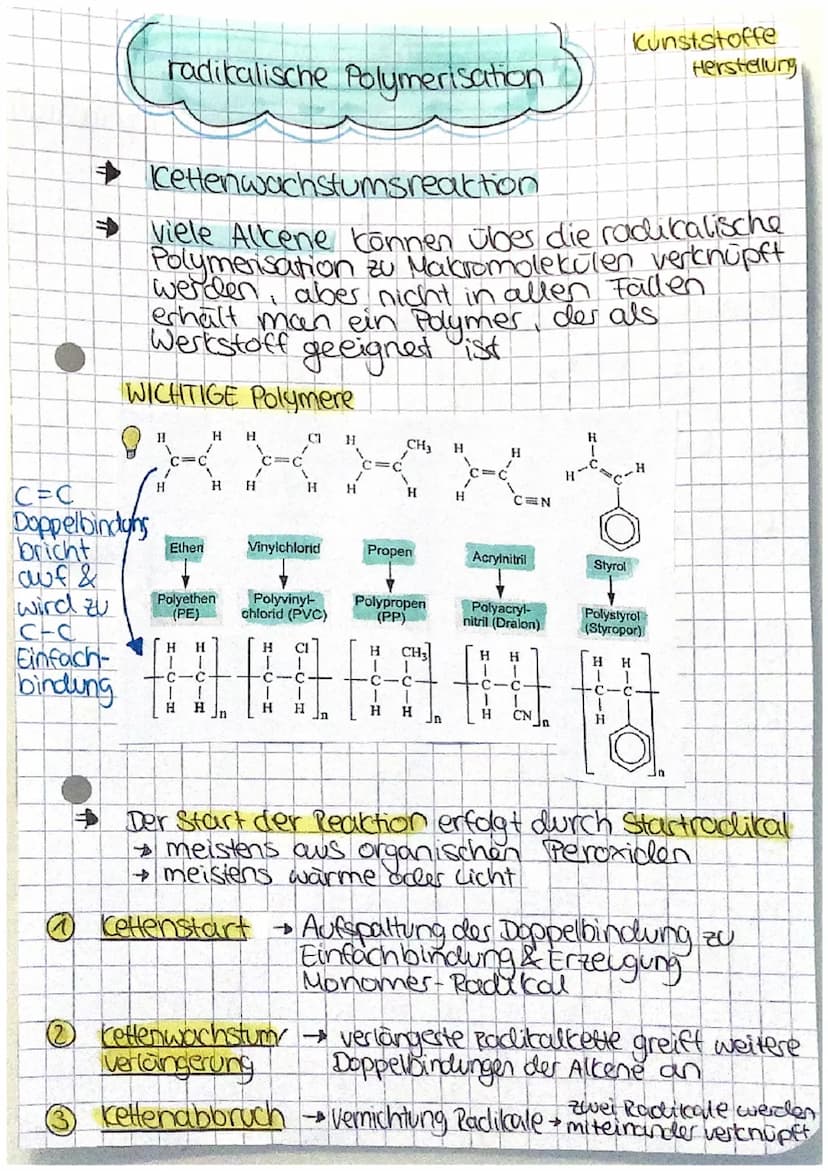 Kunststoffe
Herstellung
radikalische Polymerisation
⇒ Kettenwachstumsreaktion
⇒ viele Alkene können über die radikalische
Polymerisation zu Makromolekülen verknüpft
werden, aber nicht in allen Fällen
erhält man ein Polymer, der als
Werkstoff geeignet ist
WICHTIGE Polymere
H H H Cl H CH₃ H H H
C=C C=C C=C C=C H C=C H
H H H H H H H C≡N
C=C
Doppelbindung
bricht
auf &
wird zu
C-C
Einfach-
bindung
Ethen Vinylchlorid Propen Acrylnitril Styrol
Polyethen
(PE)
Polyvinyl-
chlorid (PVC)
Polypropen
(PP)
Polyacryl-
nitril (Dralon)
Polystyrol
(Styropor)
H H H Cl H CH₃ H H H H
C-C C-C C-C C-C C-C
H H n H H n H H n H CN n H n
⇒ Der Start der Reaktion erfolgt durch Startradikal
→ meistens aus organischen Peroxiden
→ meistens wärme oder Licht
1 Kettenstart → Aufspaltung der Doppelbindung zu
Einfachbindung & Erzeugung
Monomer-Radikal
2 Kettenwachstum/ → verlängerte Radikalkette greift weitere
verlängerung Doppelbindungen der Alkene an
3 Kettenabbruch → Vernichtung Radikale → zwei Radikale werden
miteinander verknüpft